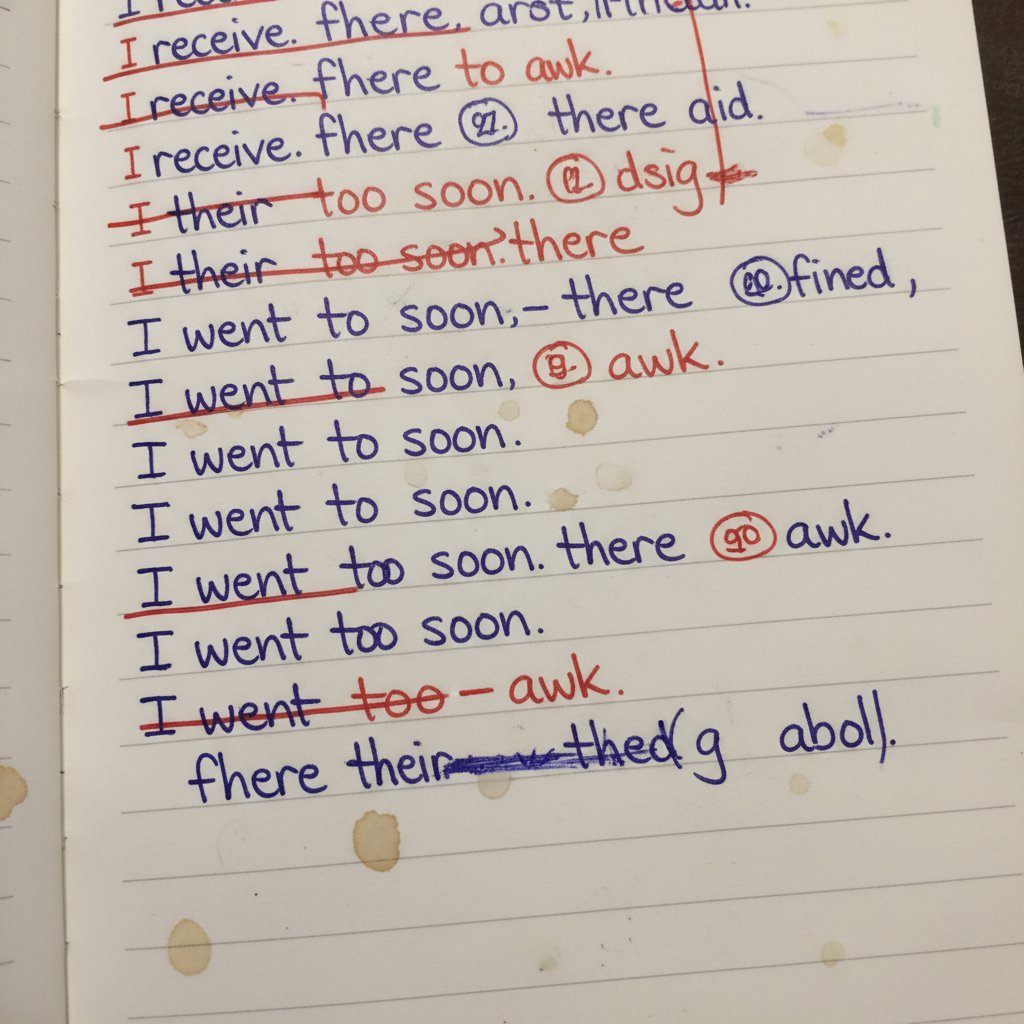 I receive. fhere, arst,
I receive. fhere to awk.
I receive. fhere there aid.
I their too soon. dsig
I their too soon? there
I went to soon,– there fined,
I went to soon, g. awk.
I went to soon.
I went to soon.
I went too soon. there go awk.
I went too soon.
I went too – awk.
fhere their thed( g abol).